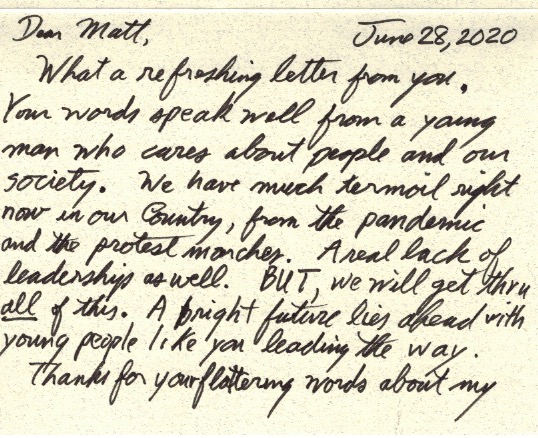 Dear Matt, June 28, 2020
What a refreshing letter from you.
Your words speak well from a young
man who cares about people and our
society. We have much termoil right
now in our Country, from the pandemic
and the protest marches. A real lack of
leadership as well. BUT, we will get thru
all of this. A bright future lies ahead with
young people like you leading the way.
Thanks for your flattering words about my